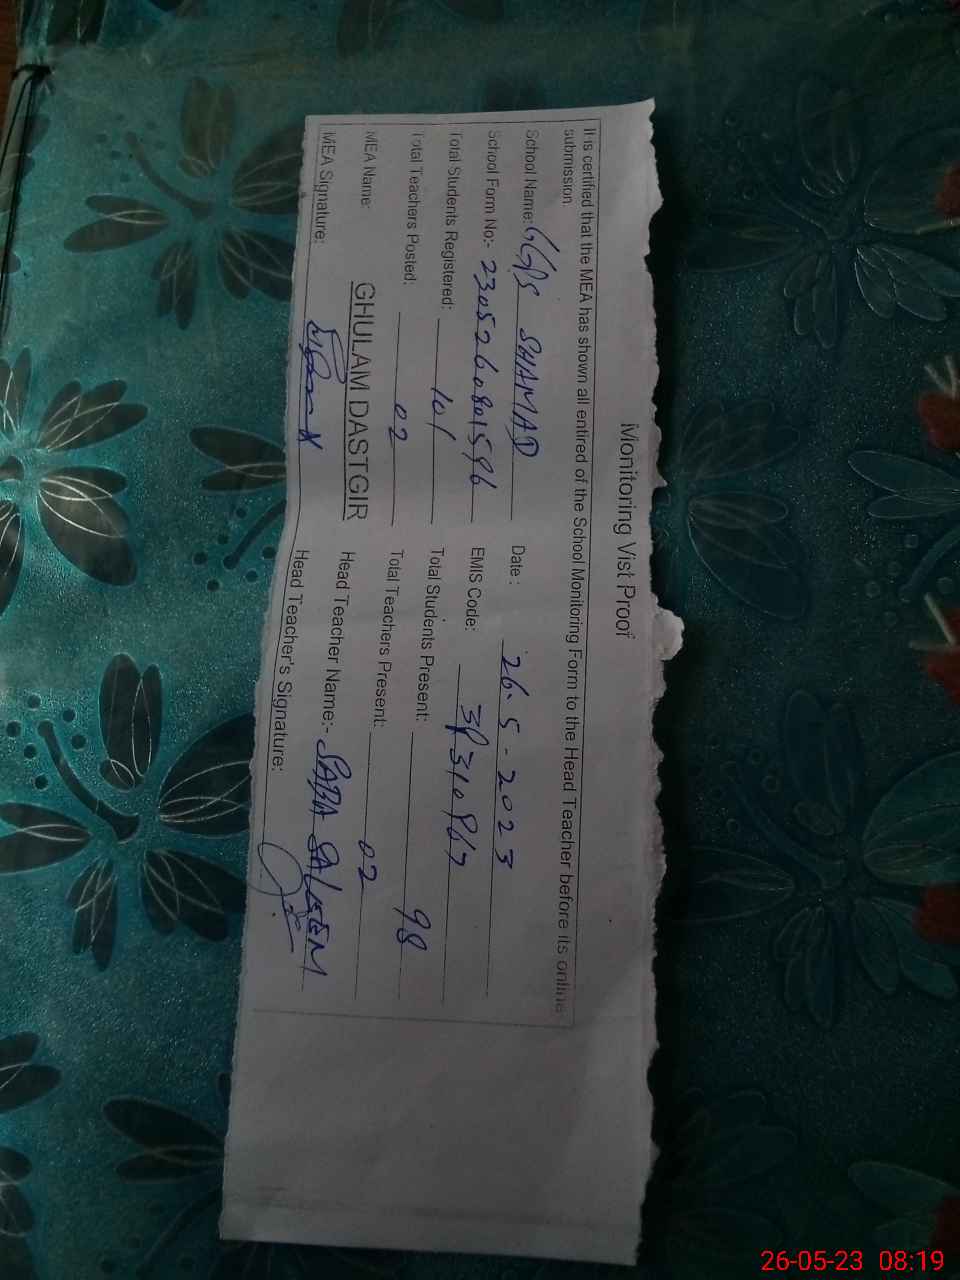 Monitoring Vist Proof
It is certified that the MEA has shown all entired of the School Monitoring Form to the Head Teacher before its online
submission.
School Name: GGPS SHAMAD Date : 26-5-2023
School Form No:- 2305260801596 EMIS Code:
Total Students Registered: 101 Total Students Present: 98
Total Teachers Posted: 02 Total Teachers Present: 02
MEA Name: GHULAM DASTGIR Head Teacher Name:- SABA SALEEM
MEA Signature: Head Teacher's Signature:
26-05-23 08:19